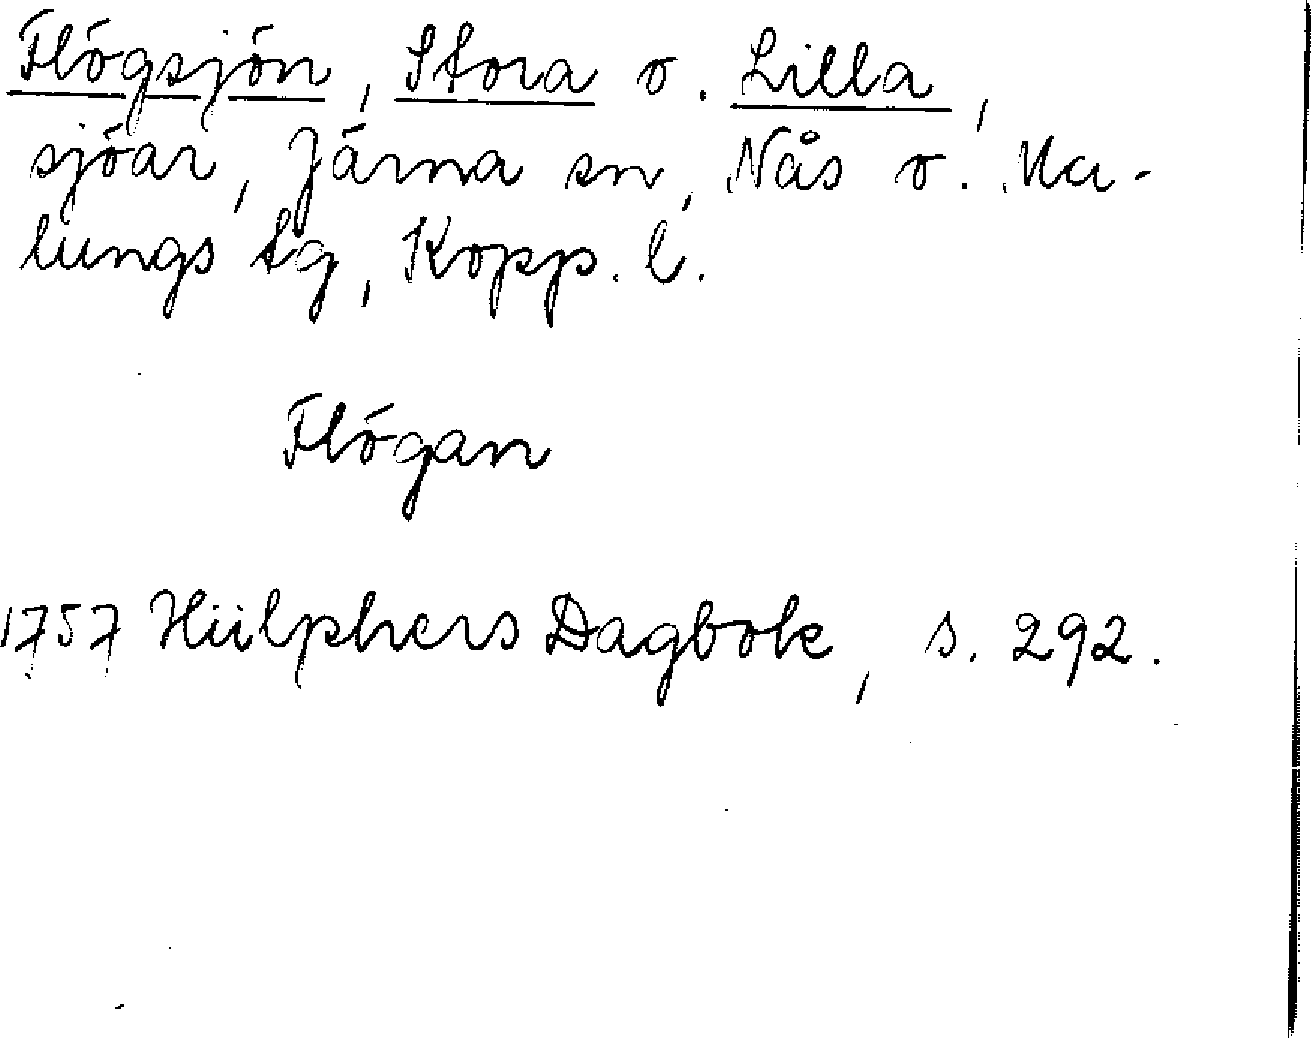 Flögsjön, Stora o. Lilla,
sjöar, Järna sn, Nås o. Ma-
lungs tg, Kopp. l.
Flögan
1757 Hülphers Dagbok, s. 292.